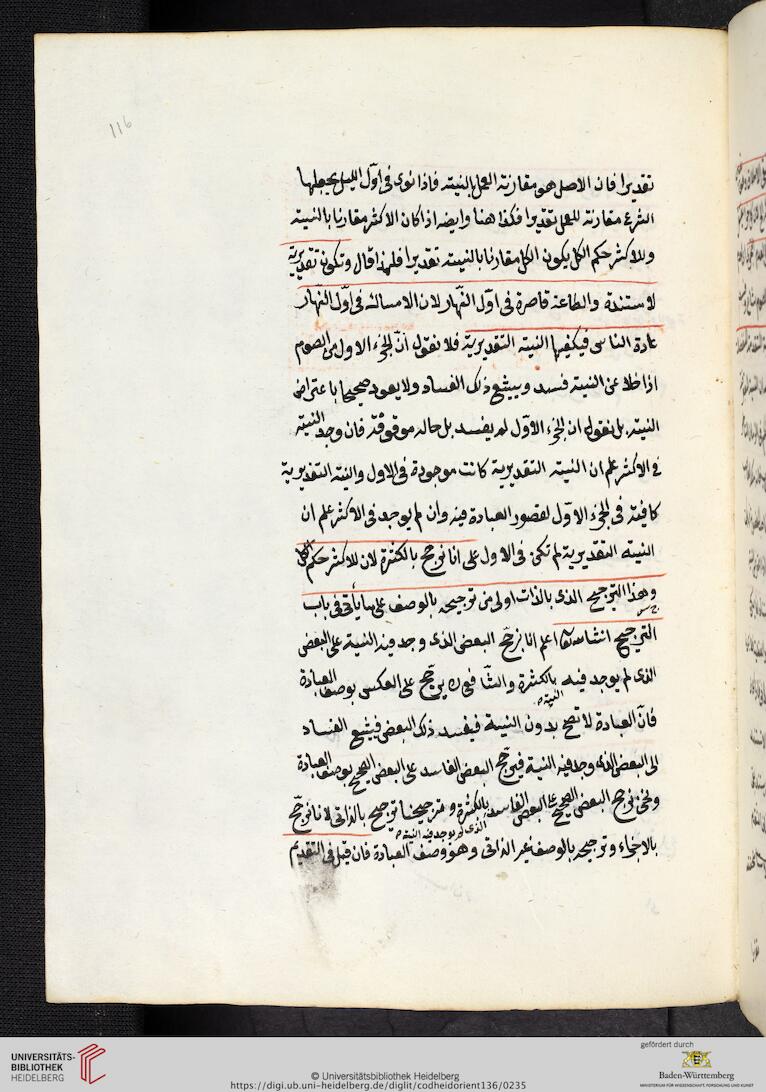 116
تقديرا فان الاصل هو مقارنة العمل بالنية فاذا نوى فى اول الليل يجعلها
الشرع مقارنة للعمل تقديرا فكذا هنا وايضا اذا كان الاكثر مقارنا بالنية
وللاكثر حكم الكل يكون الكل مقارنا بالنية تقديرا فلهذا قال وتكون تقديرية
لا مستندة والطاعة قاصرة فى اول النهار لان الامساك فى اول النهار
عادة الناس فيكفيها النية التقديرية فلا نقول ان الجزء الاول من الصوم
اذا خلا عن النية فسد ويشيع ذلك الفساد ولا يعود صحيحا باعتراض
النية بل نقول ان الجزء الاول لم يفسد بل حاله موقوفة فان وجد النية
فى الاكثر علم ان النية التقديرية كانت موجودة فى الاول والنية التقديرية
كافية فى الجزء الاول لقصور العبادة فيه وان لم يوجد فى الاكثر علم ان
النية التقديرية لم تكن فى الاول على انا نرجح بالكثرة لان للاكثر حكم الكل
وهذا الترجيح الذى بالذات اولى من ترجيحه بالوصف على ما يأتى فى باب
الترجيح ان شاء الله تعالى اعلم انا نرجح البعض الذى وجد فيه النية على البعض
الذى لم يوجد فيه النية بالكثرة والشافعى ره يرجح على العكس بوصف العبادة
فان العبادة لا تصح بدون النية فيفسد ذلك البعض فيشيع الفساد
الى البعض الذى وجد فيه النية فيرجح البعض الفاسد على البعض الصحيح بوصف العبادة
ونحن نرجح البعض الصحيح على البعض الفاسد الذى لم يوجد فيه النية بالكثرة وترجيحنا ترجيح بالذاتى لانا نرجح
بالاجزاء وترجيحه بالوصف غير الذاتى وهو وصف العبادة فان قيل فى التقديم
UNIVERSITÄTS-
BIBLIOTHEK
HEIDELBERG
© Universitätsbibliothek Heidelberg
https://digi.ub.uni-heidelberg.de/diglit/codheidorient136/0235
gefördert durch
Baden-Württemberg
MINISTERIUM FÜR WISSENSCHAFT, FORSCHUNG UND KUNST